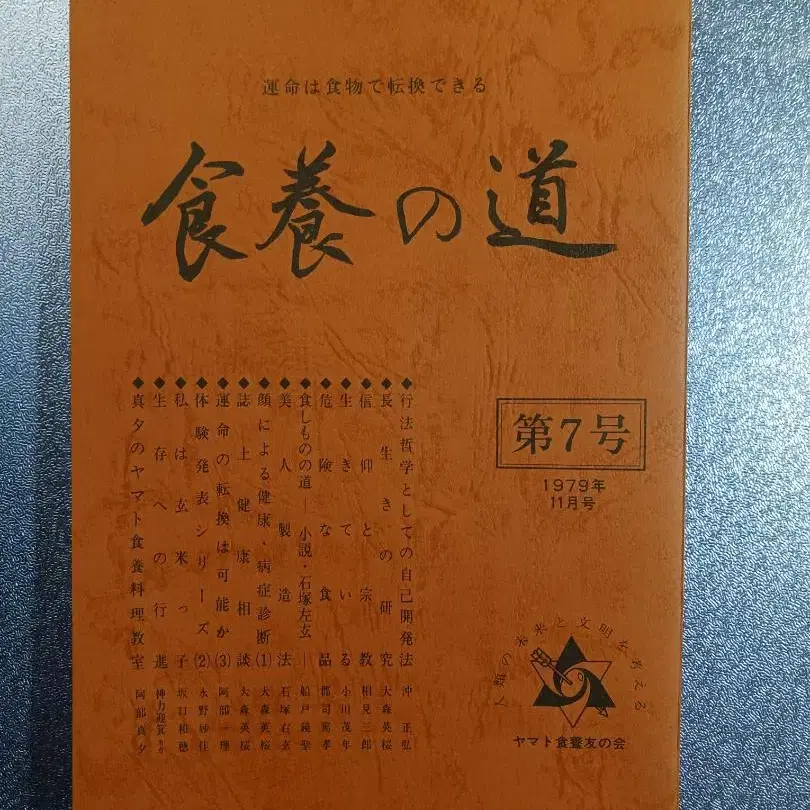 運命は食物で転換できる
食養の道
第7号
1979年
11月号
◆行法哲学としての自己開発法 沖正弘
◆長生きの研究 大森英桜
◆信仰と宗教 相見三郎
◆生きている 小川茂年
◆危険な食品 郡司篤孝
◆食しものの道―小説・石塚左玄― 船戸鏡聖
◆美人製造法 石塚右玄
◆顔による健康、病症診断(1) 大森英桜
◆誌上健康相談 大森英桜
◆運命の転換は可能か(3) 阿部一理
◆体験発表シリーズ(2) 水野妙佳
◆私は玄米っ子 坂口和穂
◆生存への行進 神力迎箕
◆真夕のヤマト食養料理教室 阿部真夕
人類の未来と文明を考える
ヤマト食養友の会